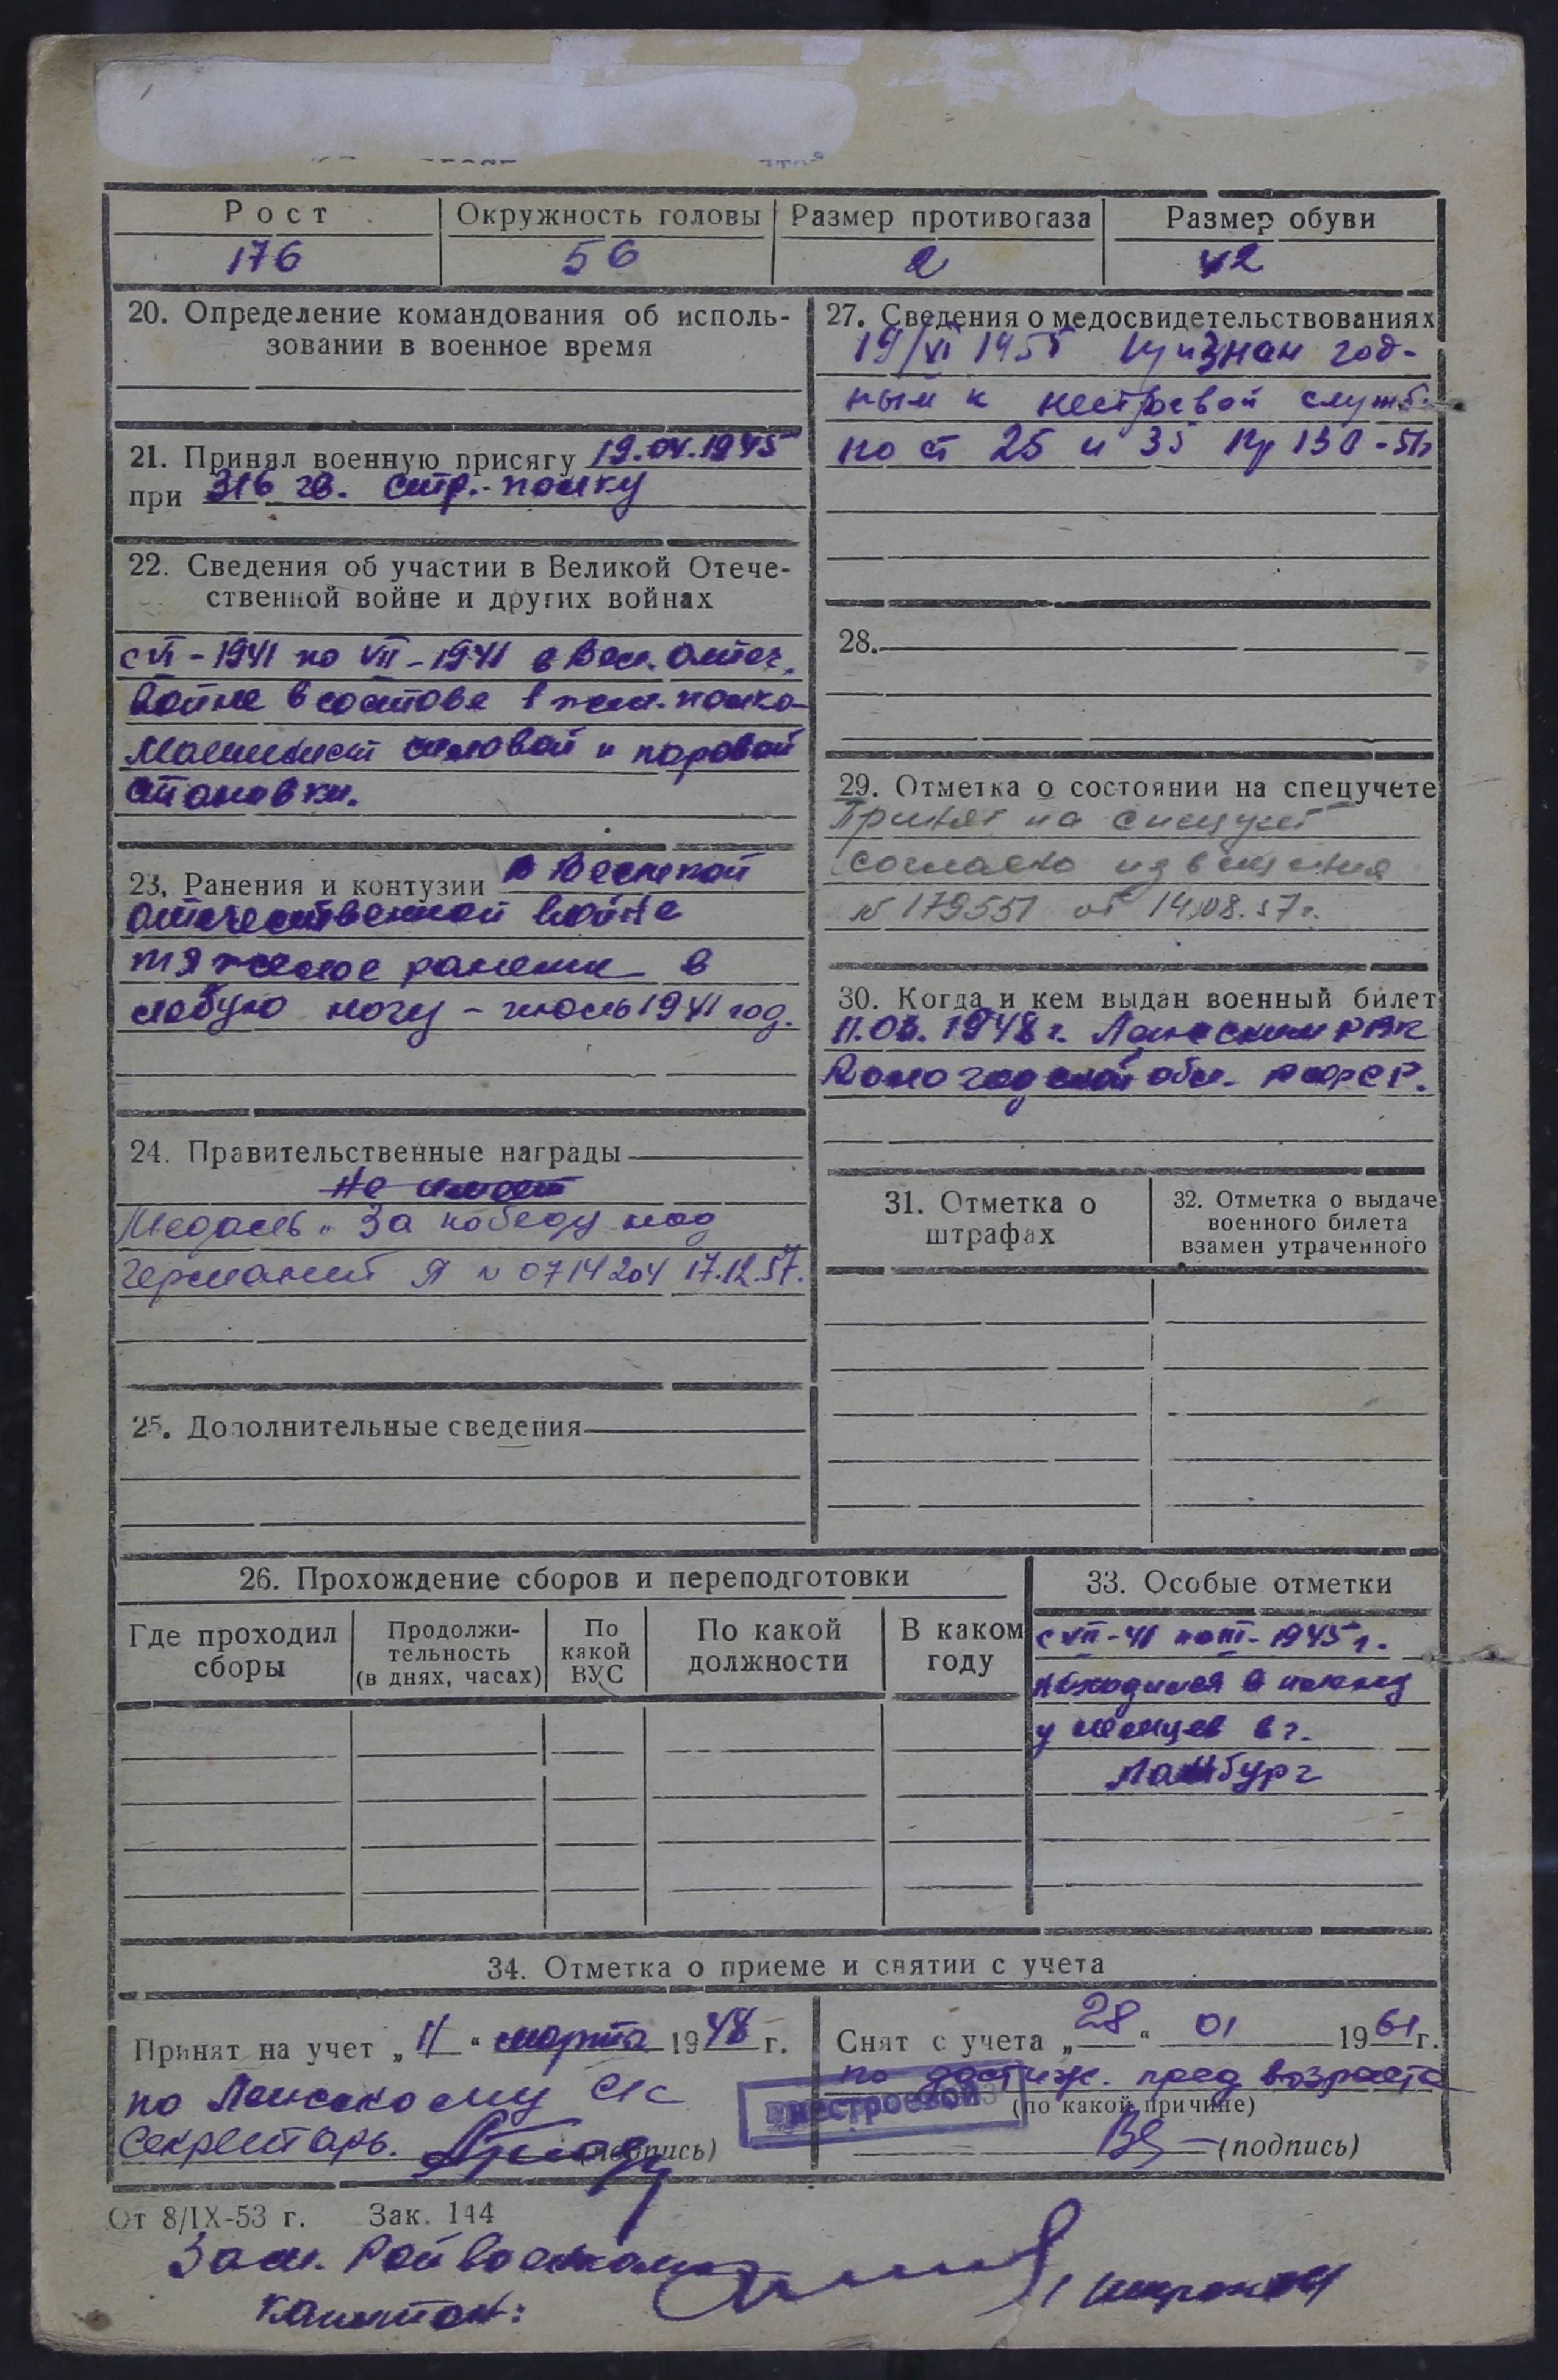 Рост Окружность головы Размер противогаза Размер обуви
176 56 2 42
20. Определение командования об исполь-
зовании в военное время
21. Принял военную присягу 19.04.1945
при 316 гв. стр. полку
22. Сведения об участии в Великой Отече-
ственной войне и других войнах
с VI-1941 по VII-1941 в Вел. Отеч.
войне в составе 1 жел. полка
Машинист силовой и паровой
становки.
23. Ранения и контузии в Великой
отечественной войне
тяжелое ранение в
левую ногу - июль 1941 год.
24. Правительственные награды
Не имеет
Медаль "За победу над
Германией Я № 0714204 17.12.57.
25. Дополнительные сведения
27. Сведения о медосвидетельствованиях
19/VI 1955 признан год-
ным к нестроевой службе
по ст 25 и 35 пр 130-51г
28.
29. Отметка о состоянии на спецучете
Принят на спецучет
согласно извещения
№ 179551 от 14.08.57г.
30. Когда и кем выдан военный билет
11.03.1948г. РВК
Вологодской обл. РСФСР.
31. Отметка о
штрафах
32. Отметка о выдаче
военного билета
взамен утраченного
26. Прохождение сборов и переподготовки
Где проходил
сборы
Продолжи-
тельность
(в днях, часах)
По
какой
ВУС
По какой
должности
В каком
году
33. Особые отметки
с VII-41 по III-1945 г.
находился в плену
у немцев в г.
34. Отметка о приеме и снятии с учета
Принят на учет „11“ марта 1948 г.
по с/с
Секретарь. (подпись)
Снят с учета „28“ 01 1961 г.
по достиж. пред возраста
(по какой причине)
(подпись)
нестроевой
От 8/IX-53 г. Зак. 144
Зам. Райвоенкома
Капитан: